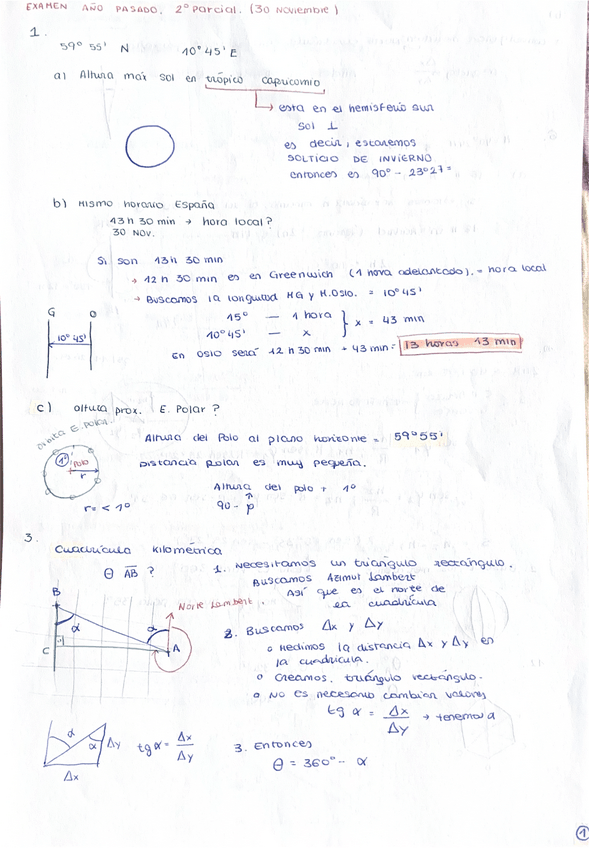 EXAMEN AÑO PASADO. 2º Parcial. (30 Noviembre)
1.
59º 55' N 10º 45' E
a) Altura max sol en trópico capricornio
esta en el hemisferio sur
Sol ⊥
es decir, estaremos
SOLTICIO DE INVIERNO
entonces es 90º - 23º27 =
b) Mismo horario España
13 h 30 min → hora local?
30 NOV.
Si son 13h 30 min
→ 12 h 30 min es en Greenwich (1 hora adelantado). = hora local
→ Buscamos la longitud MG y M.Oslo. = 10º 45'
G O
10º 45'
15º — 1 hora
10º 45' — x
x = 43 min
En Oslo será 12 h 30 min + 43 min = 13 horas 13 min
c) altura prox. E. Polar?
orbita E. Polar.
1º
Polo
r
r = < 1º
Altura del Polo al plano horizonte = 59º 55'
Distancia polar es muy pequeña.
Altura del polo + 1º
90 - p
3.
Cuadrícula kilométrica
θ AB ?
1. Necesitamos un triángulo rectángulo.
Buscamos Azimut Lambert
Así que es el norte de
la cuadrícula
B
α
C
Norte Lambert.
α
A
2. Buscamos Δx y Δy
Medimos la distancia Δx y Δy en
la cuadrícula.
Creamos triángulo rectángulo.
No es necesario cambiar valores
tg α = Δx / Δy → tenemos α
α
α
Δy
Δx
tg α = Δx / Δy
3. Entonces
θ = 360º - α
1